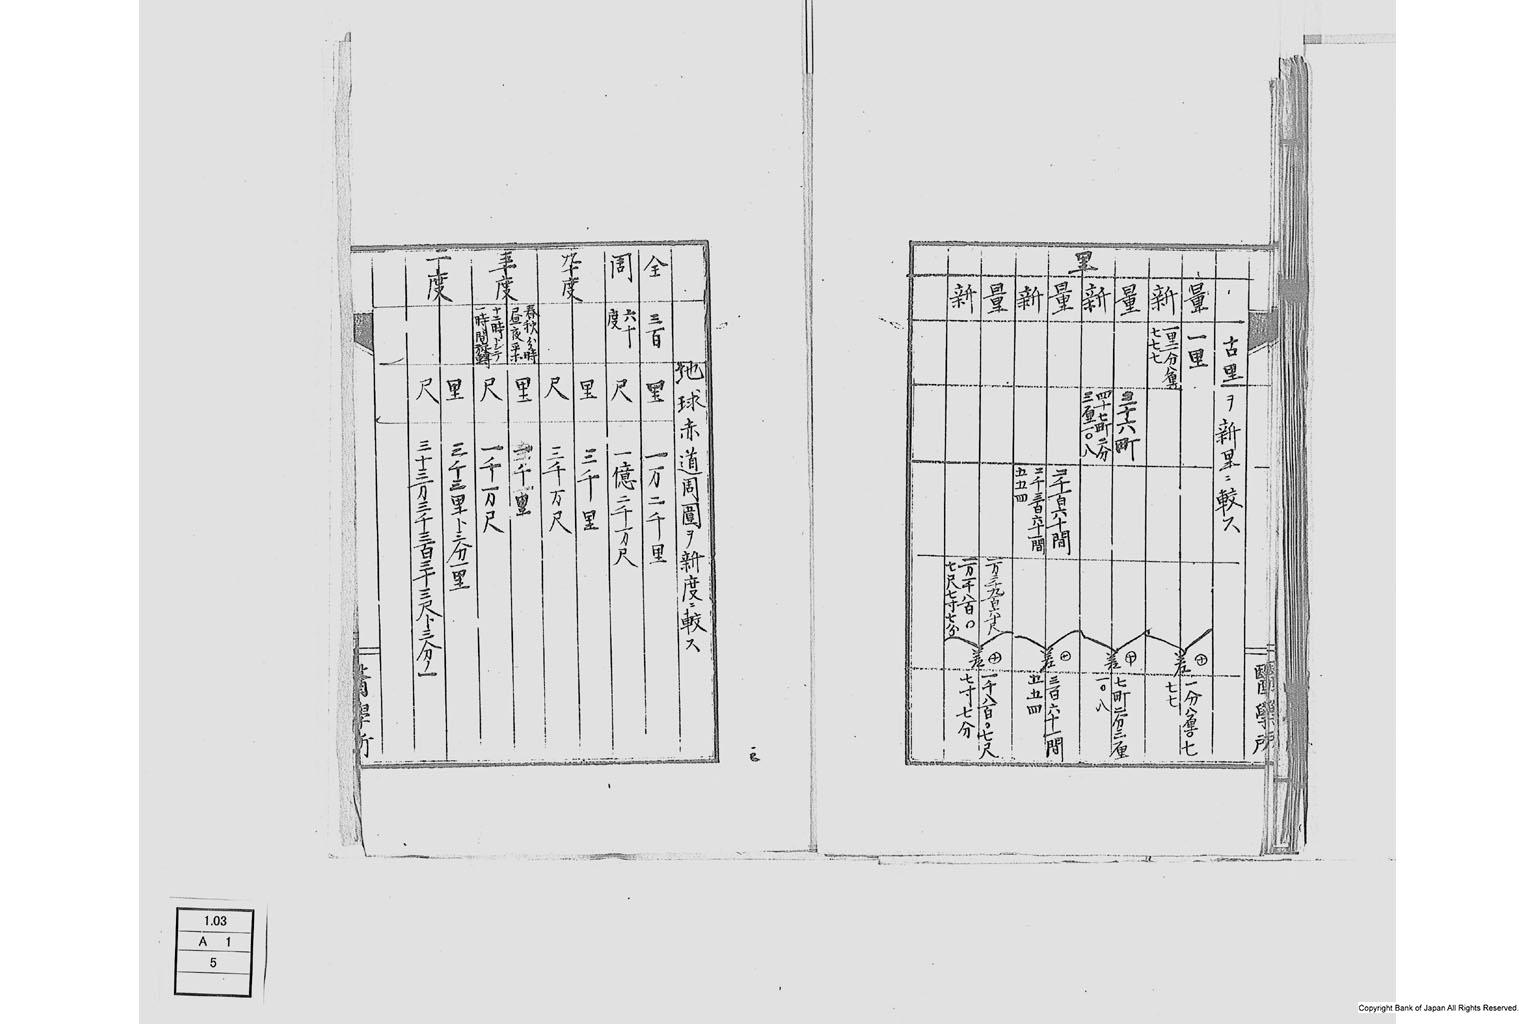 古里ヲ新里ニ較ス
里
量
一里
新
一里一分八厘
七七七
量
三十六町
新
四十七町二分
三厘一〇八
量
二千百六十間
新
二千三百六十一間
五五四
量
一万二千九百六十尺
新
一万一千八百〇
七尺七寸七分
差
一分八厘〇七
七七
差
七町二分三厘
一〇八
差
三百六十一間
五五四
差
一千八百〇七尺
七寸七分
醫學所
地球赤道周圍ヲ新度ニ較ス
全周
三百
六十
度
里
一万二千里
尺
一億二千万尺
九十度
里
三千里
尺
三千万尺
三十度
春秋分時
昼夜平等
十二時トシテ
一時間
里
一千里
尺
一千万尺
一度
里
三十三里ト三分一里
尺
三十三万三千三百三十三尺ト三分ノ一
醫學所
1.03
A 1
5
Copyright Bank of Japan All Rights Reserved.